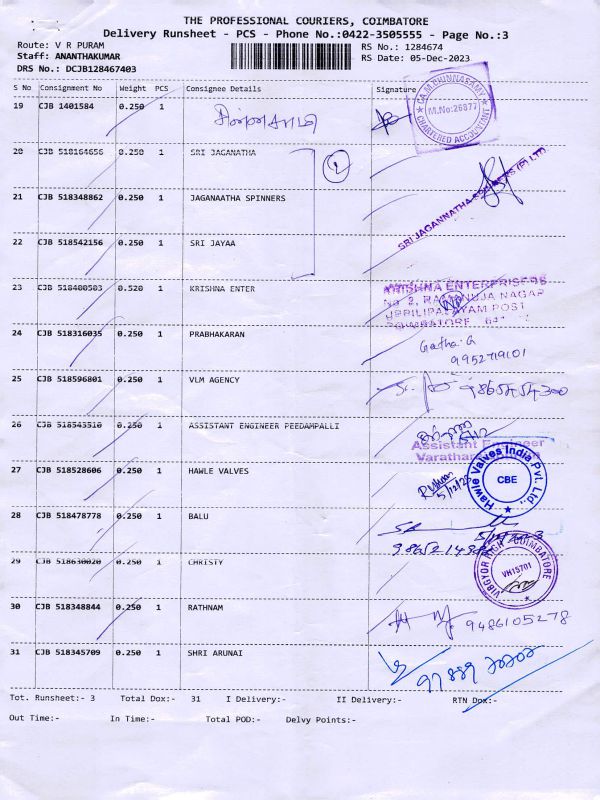 THE PROFESSIONAL COURIERS, COIMBATORE
Delivery Runsheet - PCS - Phone No.:0422-3505555 - Page No.:3
Route: V R PURAM
RS No.: 1284674
Staff: ANANTHAKUMAR
RS Date: 05-Dec-2023
DRS No.: DCJB128467403
S No Consignment No Weight PCS Consignee Details Signature
19 CJB 1401584 0.250 1
CA.M.CHINNASAMY
M.No:26877
CHARTERED ACCOUNTANT
20 CJB 518164656 0.250 1 SRI JAGANATHA
2
21 CJB 518348862 0.250 1 JAGANAATHA SPINNERS
SRI JAGANNATHA (P) LTD
22 CJB 518542156 0.250 1 SRI JAYAA
23 CJB 518480503 0.520 1 KRISHNA ENTER
KRISHNA ENTERPRISES
No 2, RAMANUJA NAGAR
UPPILIPALAYAM POST
COIMBATORE
24 CJB 518316035 0.250 1 PRABHAKARAN
Geetha. G
9952719101
25 CJB 518596801 0.250 1 VLM AGENCY
26 CJB 518543510 0.250 1 ASSISTANT ENGINEER PEEDAMPALLI
5/12
Assistant Engineer
27 CJB 518528606 0.250 1 HAWLE VALVES
5/12/23
Hawle Valves India Pvt. Ltd.,
CBE
28 CJB 518478778 0.250 1 BALU
29 CJB 518630020 0.250 1 CHRISTY
VH15701
COIMBATORE
30 CJB 518348844 0.250 1 RATHNAM
9486105278
31 CJB 518345709 0.250 1 SHRI ARUNAI
Tot. Runsheet:- 3 Total Dox:- 31 I Delivery:- II Delivery:- RTN Dox:-
Out Time:- In Time:- Total POD:- Delvy Points:-